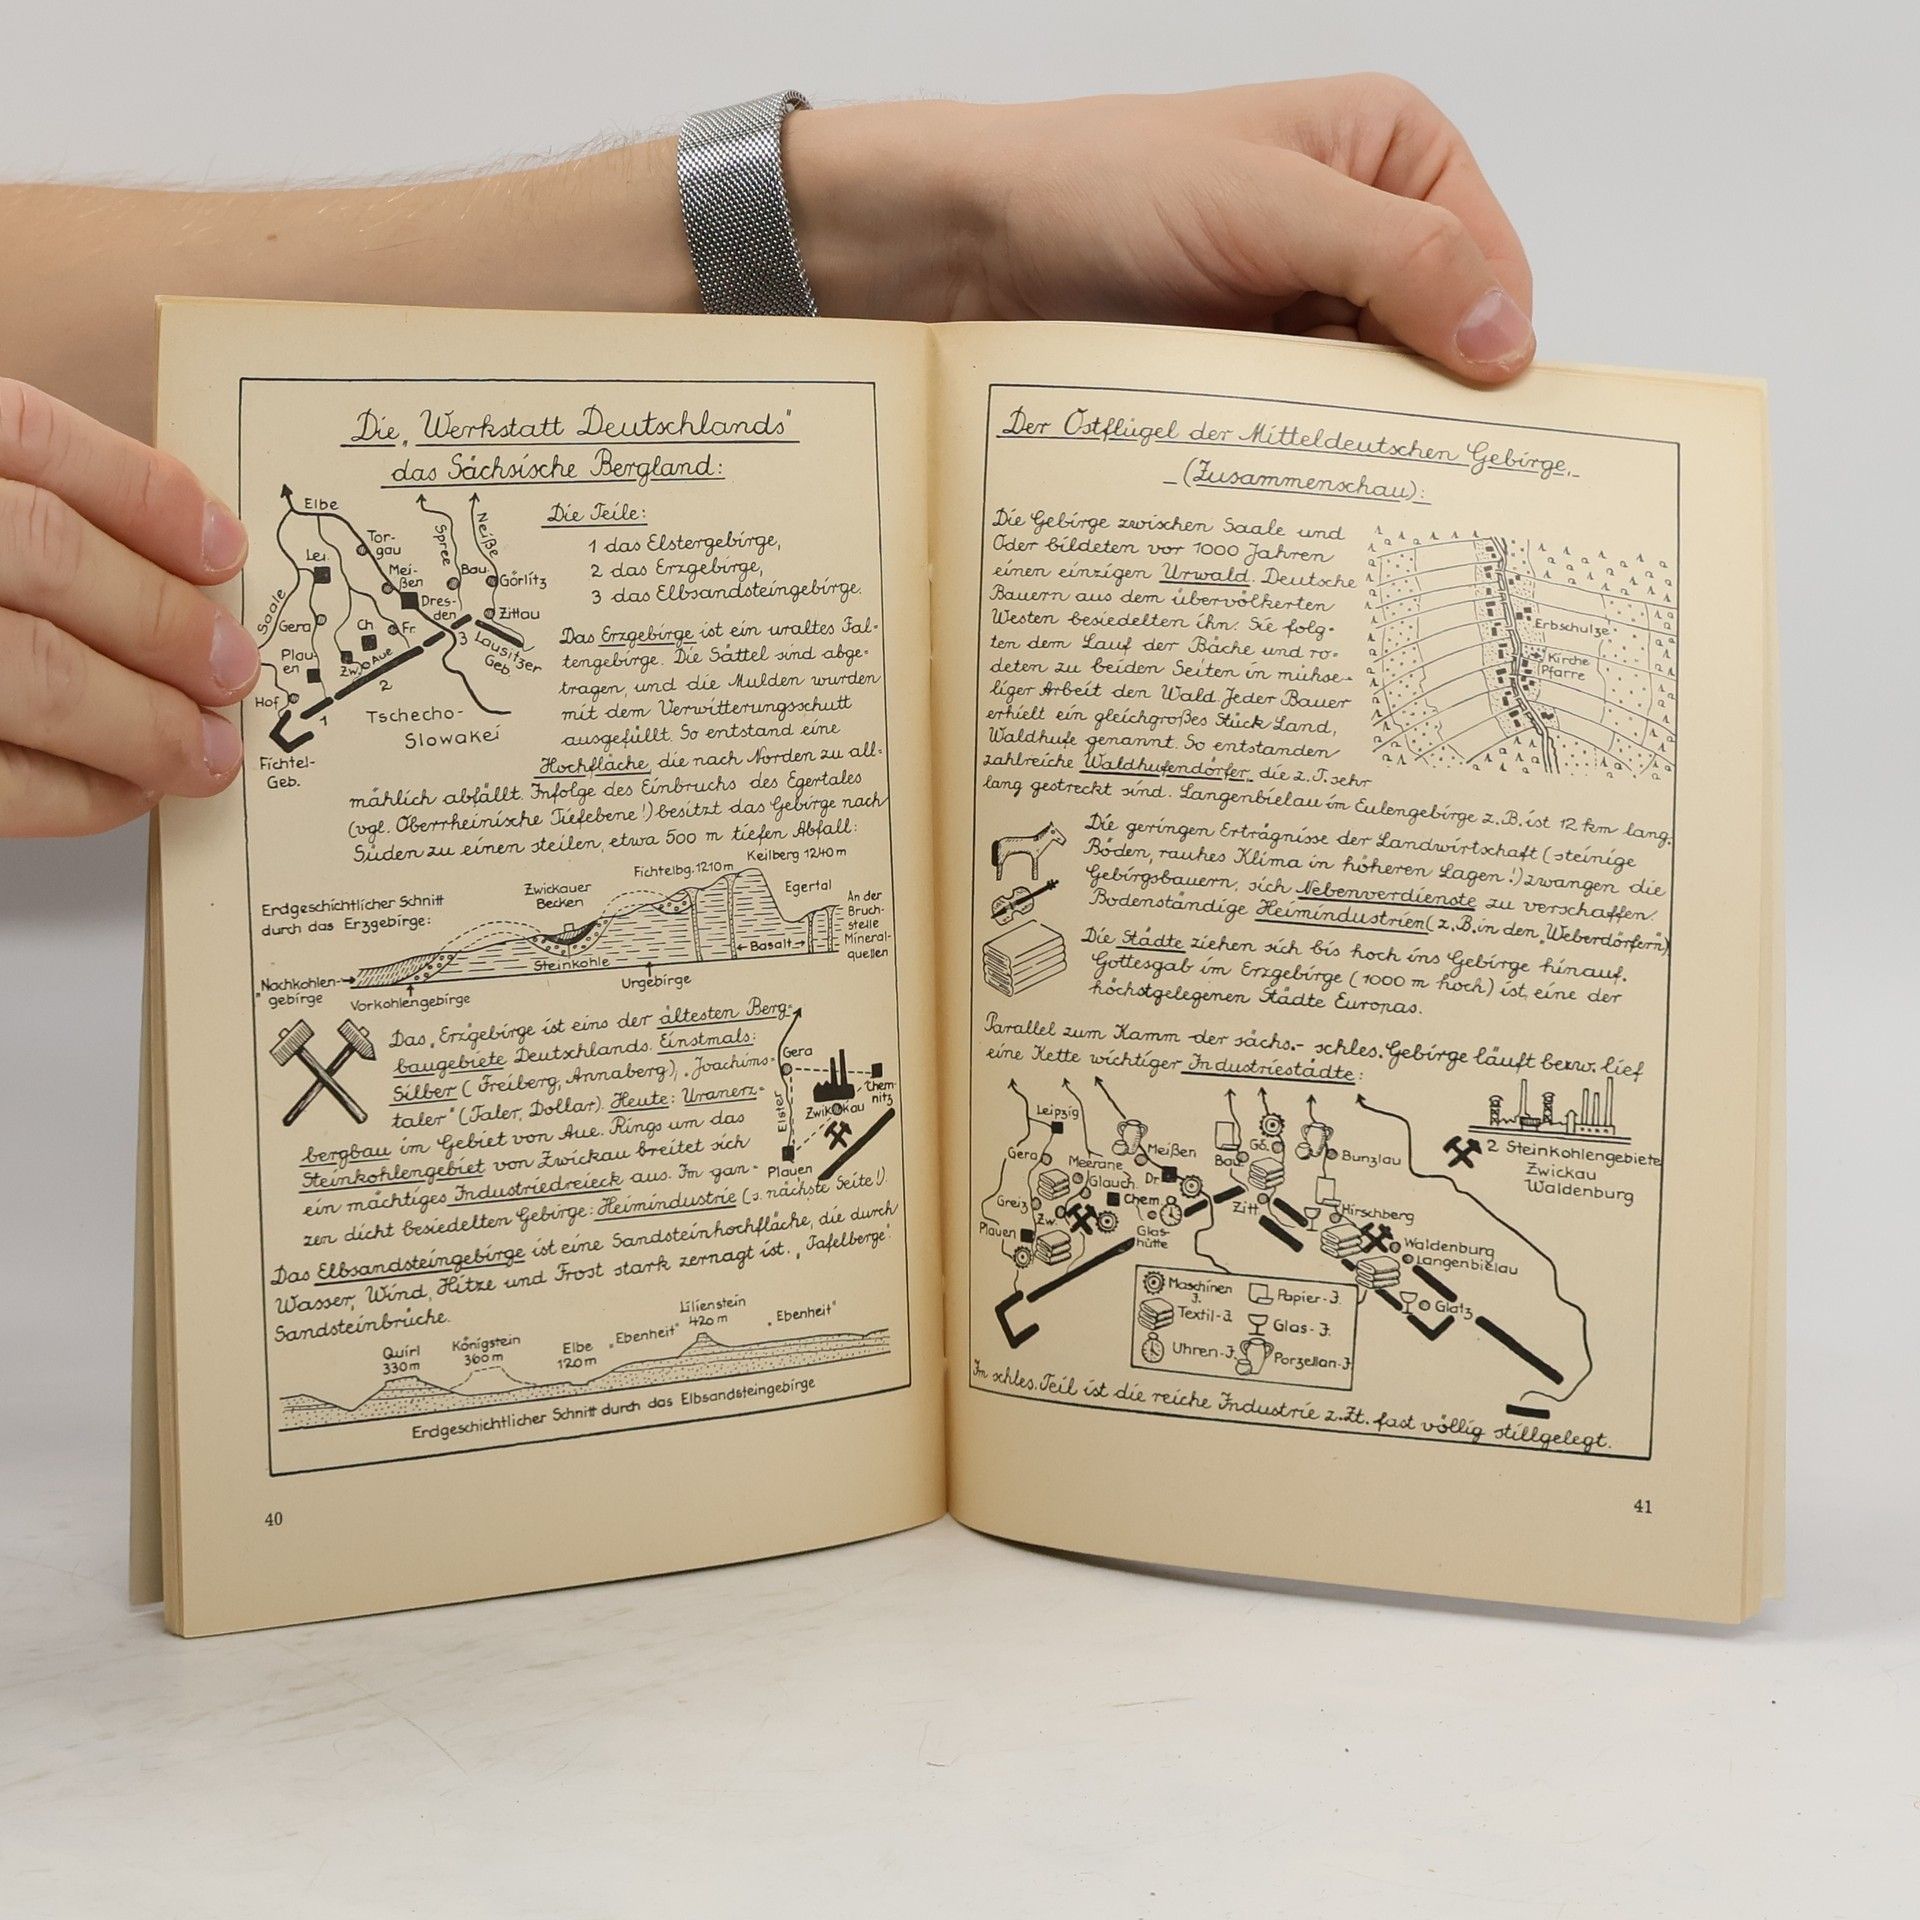 Die „Werkstatt Deutschlands"
das Sächsische Bergland:
Elbe
Tor-
gau
Spree
Neiße
Lei.
Mei-
ßen
Bau.
Görlitz
Saale
Dres-
den
Zittau
Gera
Ch.
Fr.
Plau-
en
Zw.
Aue
3
Lausitzer
Geb.
2
Hof
1
Tschecho-
Slowakei
Fichtel-
Geb.
Die Teile:
1 das Elstergebirge,
2 das Erzgebirge,
3 das Elbsandsteingebirge.
Das Erzgebirge ist ein uraltes Fal-
tengebirge. Die Sättel sind abge-
tragen, und die Mulden wurden
mit dem Verwitterungsschutt
ausgefüllt. So entstand eine
Hochfläche, die nach Norden zu all-
mählich abfällt. Infolge des Einbruchs des Egertales
(vgl. Oberrheinische Tiefebene!) besitzt das Gebirge nach
Süden zu einen steilen, etwa 500 m tiefen Abfall:
Erdgeschichtlicher Schnitt
durch das Erzgebirge:
Zwickauer
Becken
Fichtelbg. 1210 m
Keilberg 1240 m
Egertal
An der
Bruch-
stelle
Mineral-
quellen
Basalt
Steinkohle
Nachkohlen-
gebirge
Vorkohlengebirge
Urgebirge
Das „Erzgebirge ist eins der ältesten Berg-
baugebiete Deutschlands. Einstmals:
Silber (Freiberg, Annaberg), „Joachims-
taler" (Taler, Dollar). Heute: Uranerz-
bergbau im Gebiet von Aue. Rings um das
Steinkohlengebiet von Zwickau breitet sich
ein mächtiges Industriedreieck aus. Im gan-
zen dicht besiedelten Gebirge: Heimindustrie (s. nächste Seite!).
Gera
Chem-
nitz
Zwikkau
Elster
Plauen
Das Elbsandsteingebirge ist eine Sandsteinhochfläche, die durch
Wasser, Wind, Hitze und Frost stark zernagt ist. „Tafelberge".
Sandsteinbrüche.
Quirl
330 m
Königstein
360 m
Elbe
120 m
„Ebenheit"
Lilienstein
420 m
„Ebenheit"
Erdgeschichtlicher Schnitt durch das Elbsandsteingebirge
40
Der Ostflügel der Mitteldeutschen Gebirge.
(Zusammenschau):
Die Gebirge zwischen Saale und
Oder bildeten vor 1000 Jahren
einen einzigen Urwald. Deutsche
Bauern aus dem übervölkerten
Westen besiedelten ihn. Sie folg-
ten dem Lauf der Bäche und ro-
deten zu beiden Seiten in mühse-
liger Arbeit den Wald. Jeder Bauer
erhielt ein gleichgroßes Stück Land,
Waldhufe genannt. So entstanden
zahlreiche Waldhufendörfer, die z. T. sehr
lang gestreckt sind. Langenbielau im Eulengebirge z. B. ist 12 km lang.
Erbschulze
Kirche
Pfarre
Die geringen Erträgnisse der Landwirtschaft (steinige
Böden, rauhes Klima in höheren Lagen!) zwangen die
Gebirgsbauern, sich Nebenverdienste zu verschaffen.
Bodenständige Heimindustrien (z. B. in den „Weberdörfern").
Die Städte ziehen sich bis hoch ins Gebirge hinauf.
Gottesgab im Erzgebirge (1000 m hoch) ist eine der
höchstgelegenen Städte Europas.
Parallel zum Kamm der sächs.- schles. Gebirge läuft bezw. lief
eine Kette wichtiger Industriestädte:
Leipzig
Gera
Meerane
Glauch.
Meißen
Dr.
Bau.
Gö.
Bunzlau
2 Steinkohlengebiete
Zwickau
Waldenburg
Greiz
Zw.
Chem.
Zitt.
Hirschberg
Plauen
Glas-
hütte
Waldenburg
Langenbielau
Glatz
Maschinen
J.
Papier-J.
Textil-J.
Glas-J.
Uhren-J.
Porzellan-J.
Im schles. Teil ist die reiche Industrie z. Zt. fast völlig stillgelegt.
41